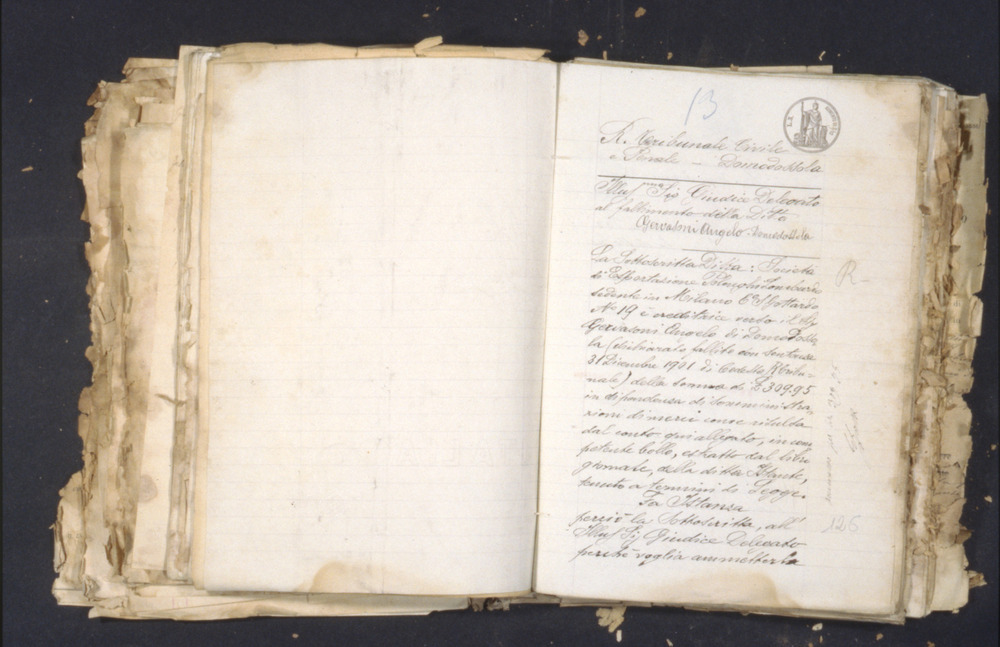 13
R. Tribunale Civile
e Penale - Domodossola
Illus.mo Sig Giudice Delegato
al fallimento della Ditta
Gervasoni Angelo - Domodossola
La Sottoscritta Ditta: Società
di Esportazione Polenghi Lombardo
sedente in Milano C. S. Gottardo
N.o 19 è creditrice verso il Sig
Gervasoni Angelo di Domodosso
la (dichiarato fallito con Sentenza
31 Dicembre 1901 di codesto R. Tribu-
nale) della somma di £ 309.95
in dipendenza di somministra-
zioni di merci come risulta
dal conto qui allegato, in com
petente bollo, estratto dal libro
giornale, della ditta Istante,
tenuto a termini di Legge.
Fa Istanza
perciò la Sottoscritta, all'
Illus Sig Giudice Delegato
perchè voglia ammetterla
R-
ammessi per
126